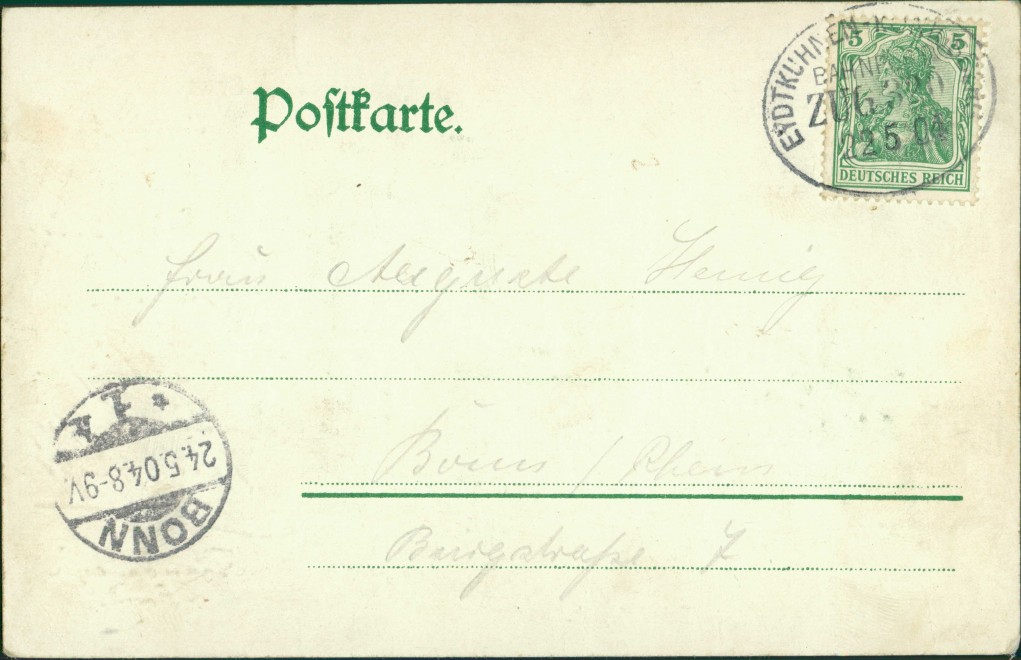 Postkarte.
5 5
DEUTSCHES REICH
EYDTKUHNEN-K
BAHNP
ZUG
22 5 04
Frau Auguste Hennig
Bonn / Rhein
Burgstraße 7
* 1 k
24.5.04.8-9V.
BONN